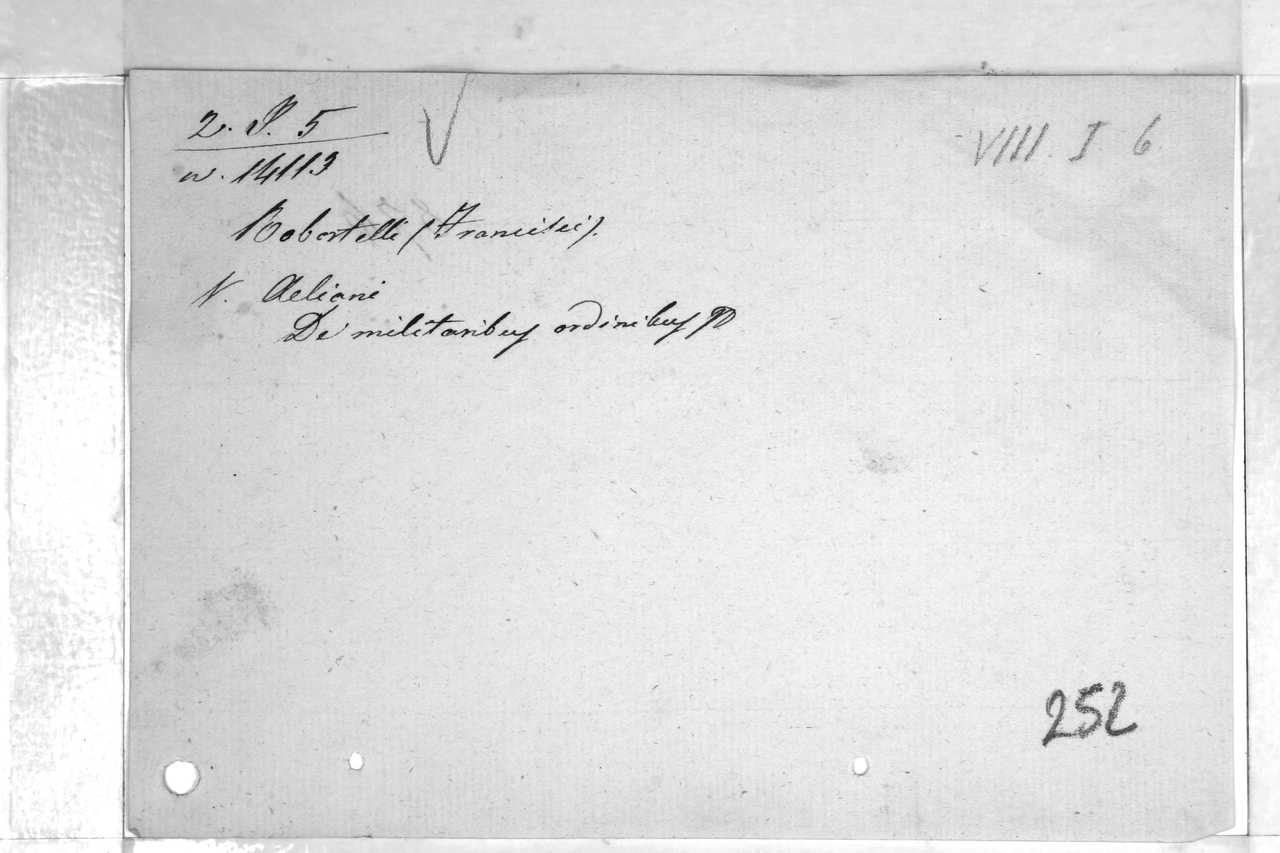 2. P. 5
VIII. I 6
n. 14113
Robortelli (Francisci).
V. Aeliani
De militaribus ordinibus
252